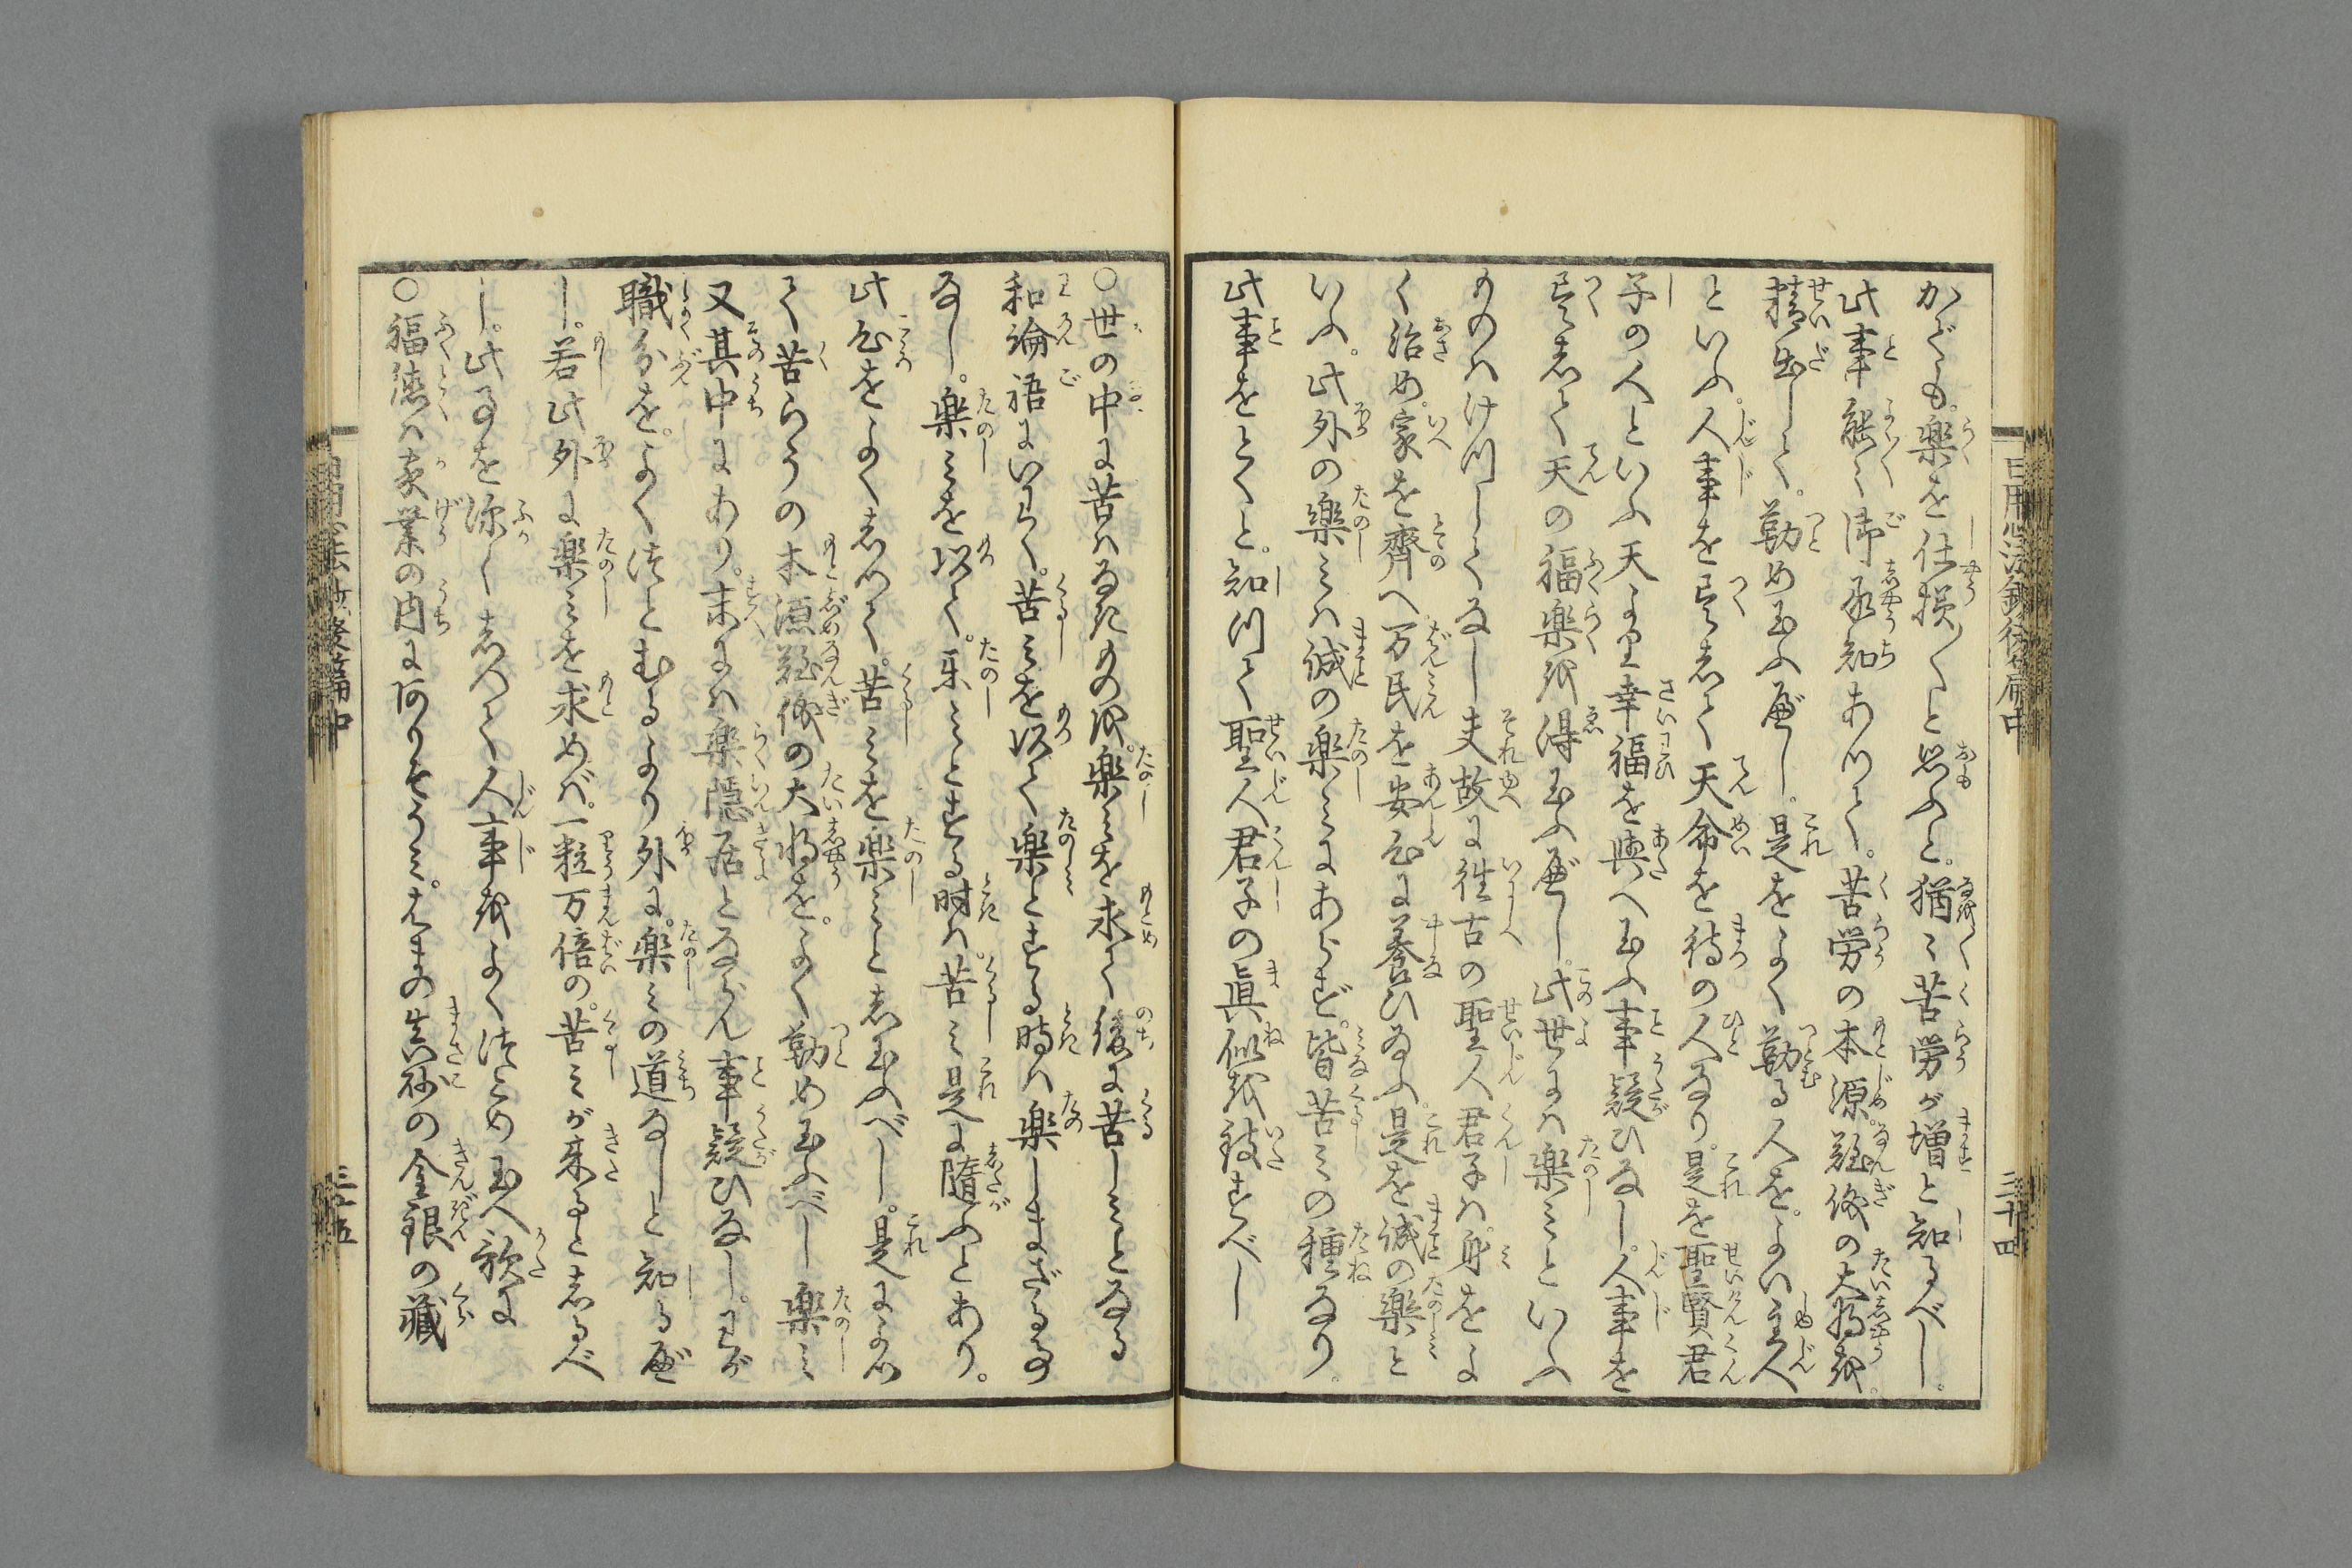 かぐも。楽を仕損〳〵と思ふと。猶〻苦労が増と知るべし。
此事能〻御承知あつて。苦労の本源。難儀の大将を。
精出して。勤め玉ふべし。是をよく勤る人を。よい主人
といふ。人事を尽して天命を待の人なり。是を聖賢君
子の人といふ天より幸福を与へ玉ふ事疑ひなし。人事を
尽して天の福楽を得玉ふべし。此世には楽みといふ
ものはけつしてなし夫故に往古の聖人君子は。身をよ
く治め。家を齊へ。万民を安心に養ひなふ。是を誠の楽と
いふ。此外の楽みは誠の楽みにあらず。皆苦みの種なり。
此事をとくと。知つて聖人君子の真似を致すべし
〇世の中に苦はなきものを。楽みを求て後に苦しみとなる
和論語にいわく。苦みを以て楽とする時は楽しまざる事
なし。楽みを以て。楽みとする時は。苦み是に随ふとあり。
此心をよくしつて。苦みを楽みとし玉ふべし。是によつ
て苦らうの本源難儀の大将を。よく勤め玉ふべし楽み
又其中にあり。末には楽隠居とならん事疑ひなし。わが
職分を。よくつとむるより外に。楽みの道なしと知るべ
し。若此外に楽みを求めば。一粒万倍の。苦みが来るとしるべ
し。此事を深くしつて人事をよくつとめ玉へ歌に
〇福徳は家業の内にありそうみ。はまの真砂の金銀の蔵
日用心法鈔後篇中
三十四
三十五